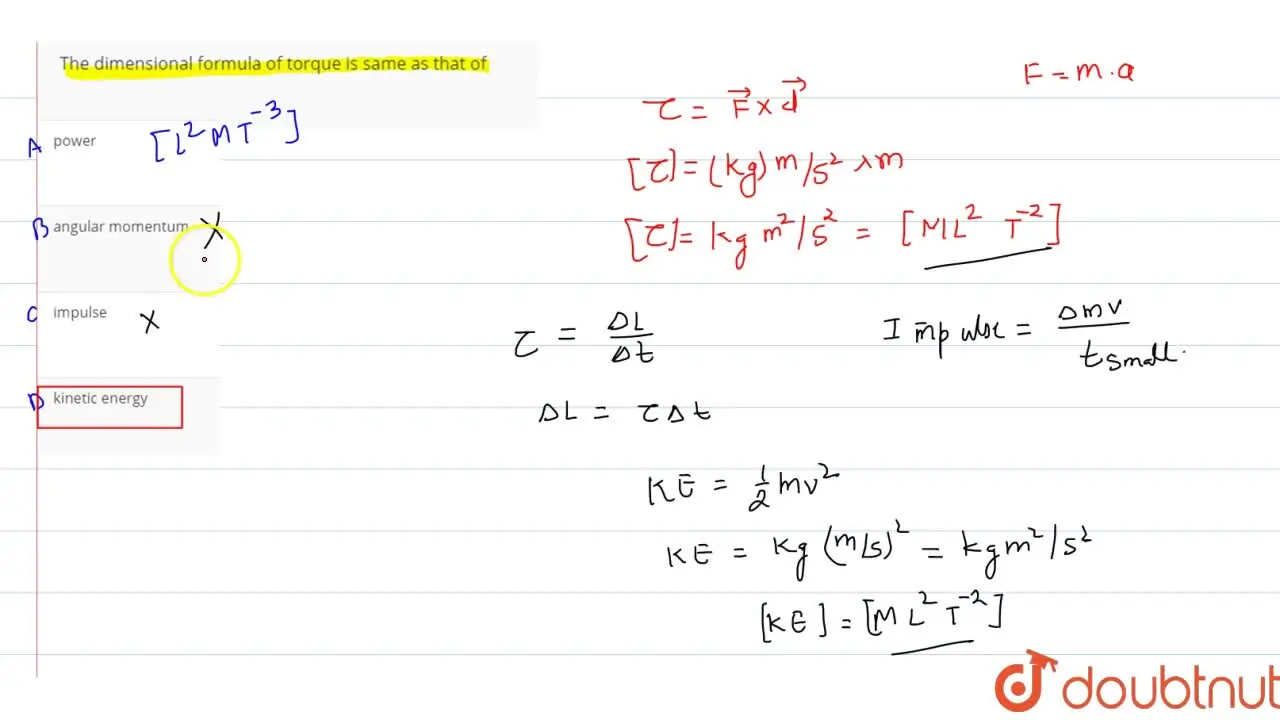 The dimensional formula of torque is same as that of
A power [L²MT⁻³]
B angular momentum X
C impulse X
D kinetic energy
F = m.a
τ = F⃗ × d⃗
[τ] = (kg) m/s² × m
[τ] = kg m²/s² = [ML² T⁻²]
τ = ΔL/Δt
Impulse = Δmv/t small.
ΔL = τΔt
KE = 1/2 mv²
KE = kg (m/s)² = kgm²/s²
[KE] = [ML²T⁻²]
doubtnut